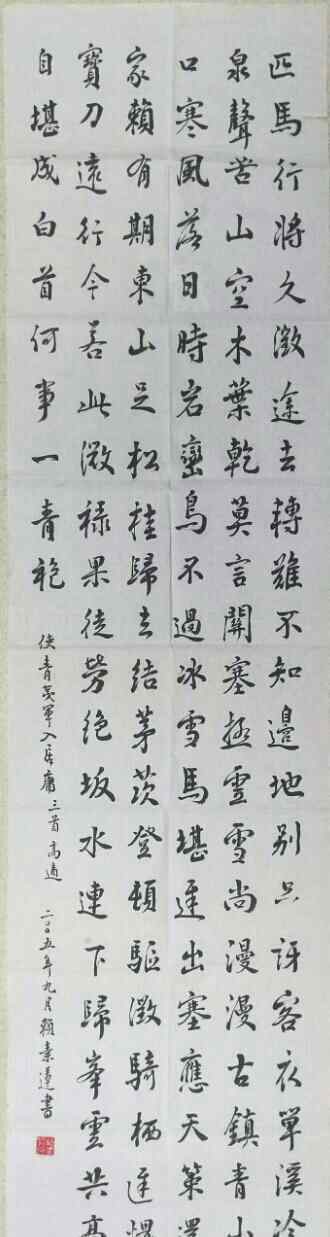 匹馬行將久徵途去轉難不知邊地別只訝客衣單溪冷
泉聲苦山空木葉乾莫言關塞極雲雪尚漫漫古鎮青山
口寒風落日時岩巒鳥不過冰雪馬堪遲出塞應无策還
家賴有期東山足松桂歸去結茅茨登頓驅徵騎栖遲愧
寶刀遠行今若此微祿果徒勞絕坂水連下歸峯雲共高
自堪成白首何事一青袍
使青夷軍入居庸三首 高適 二〇〇五年九月賴素蓮書